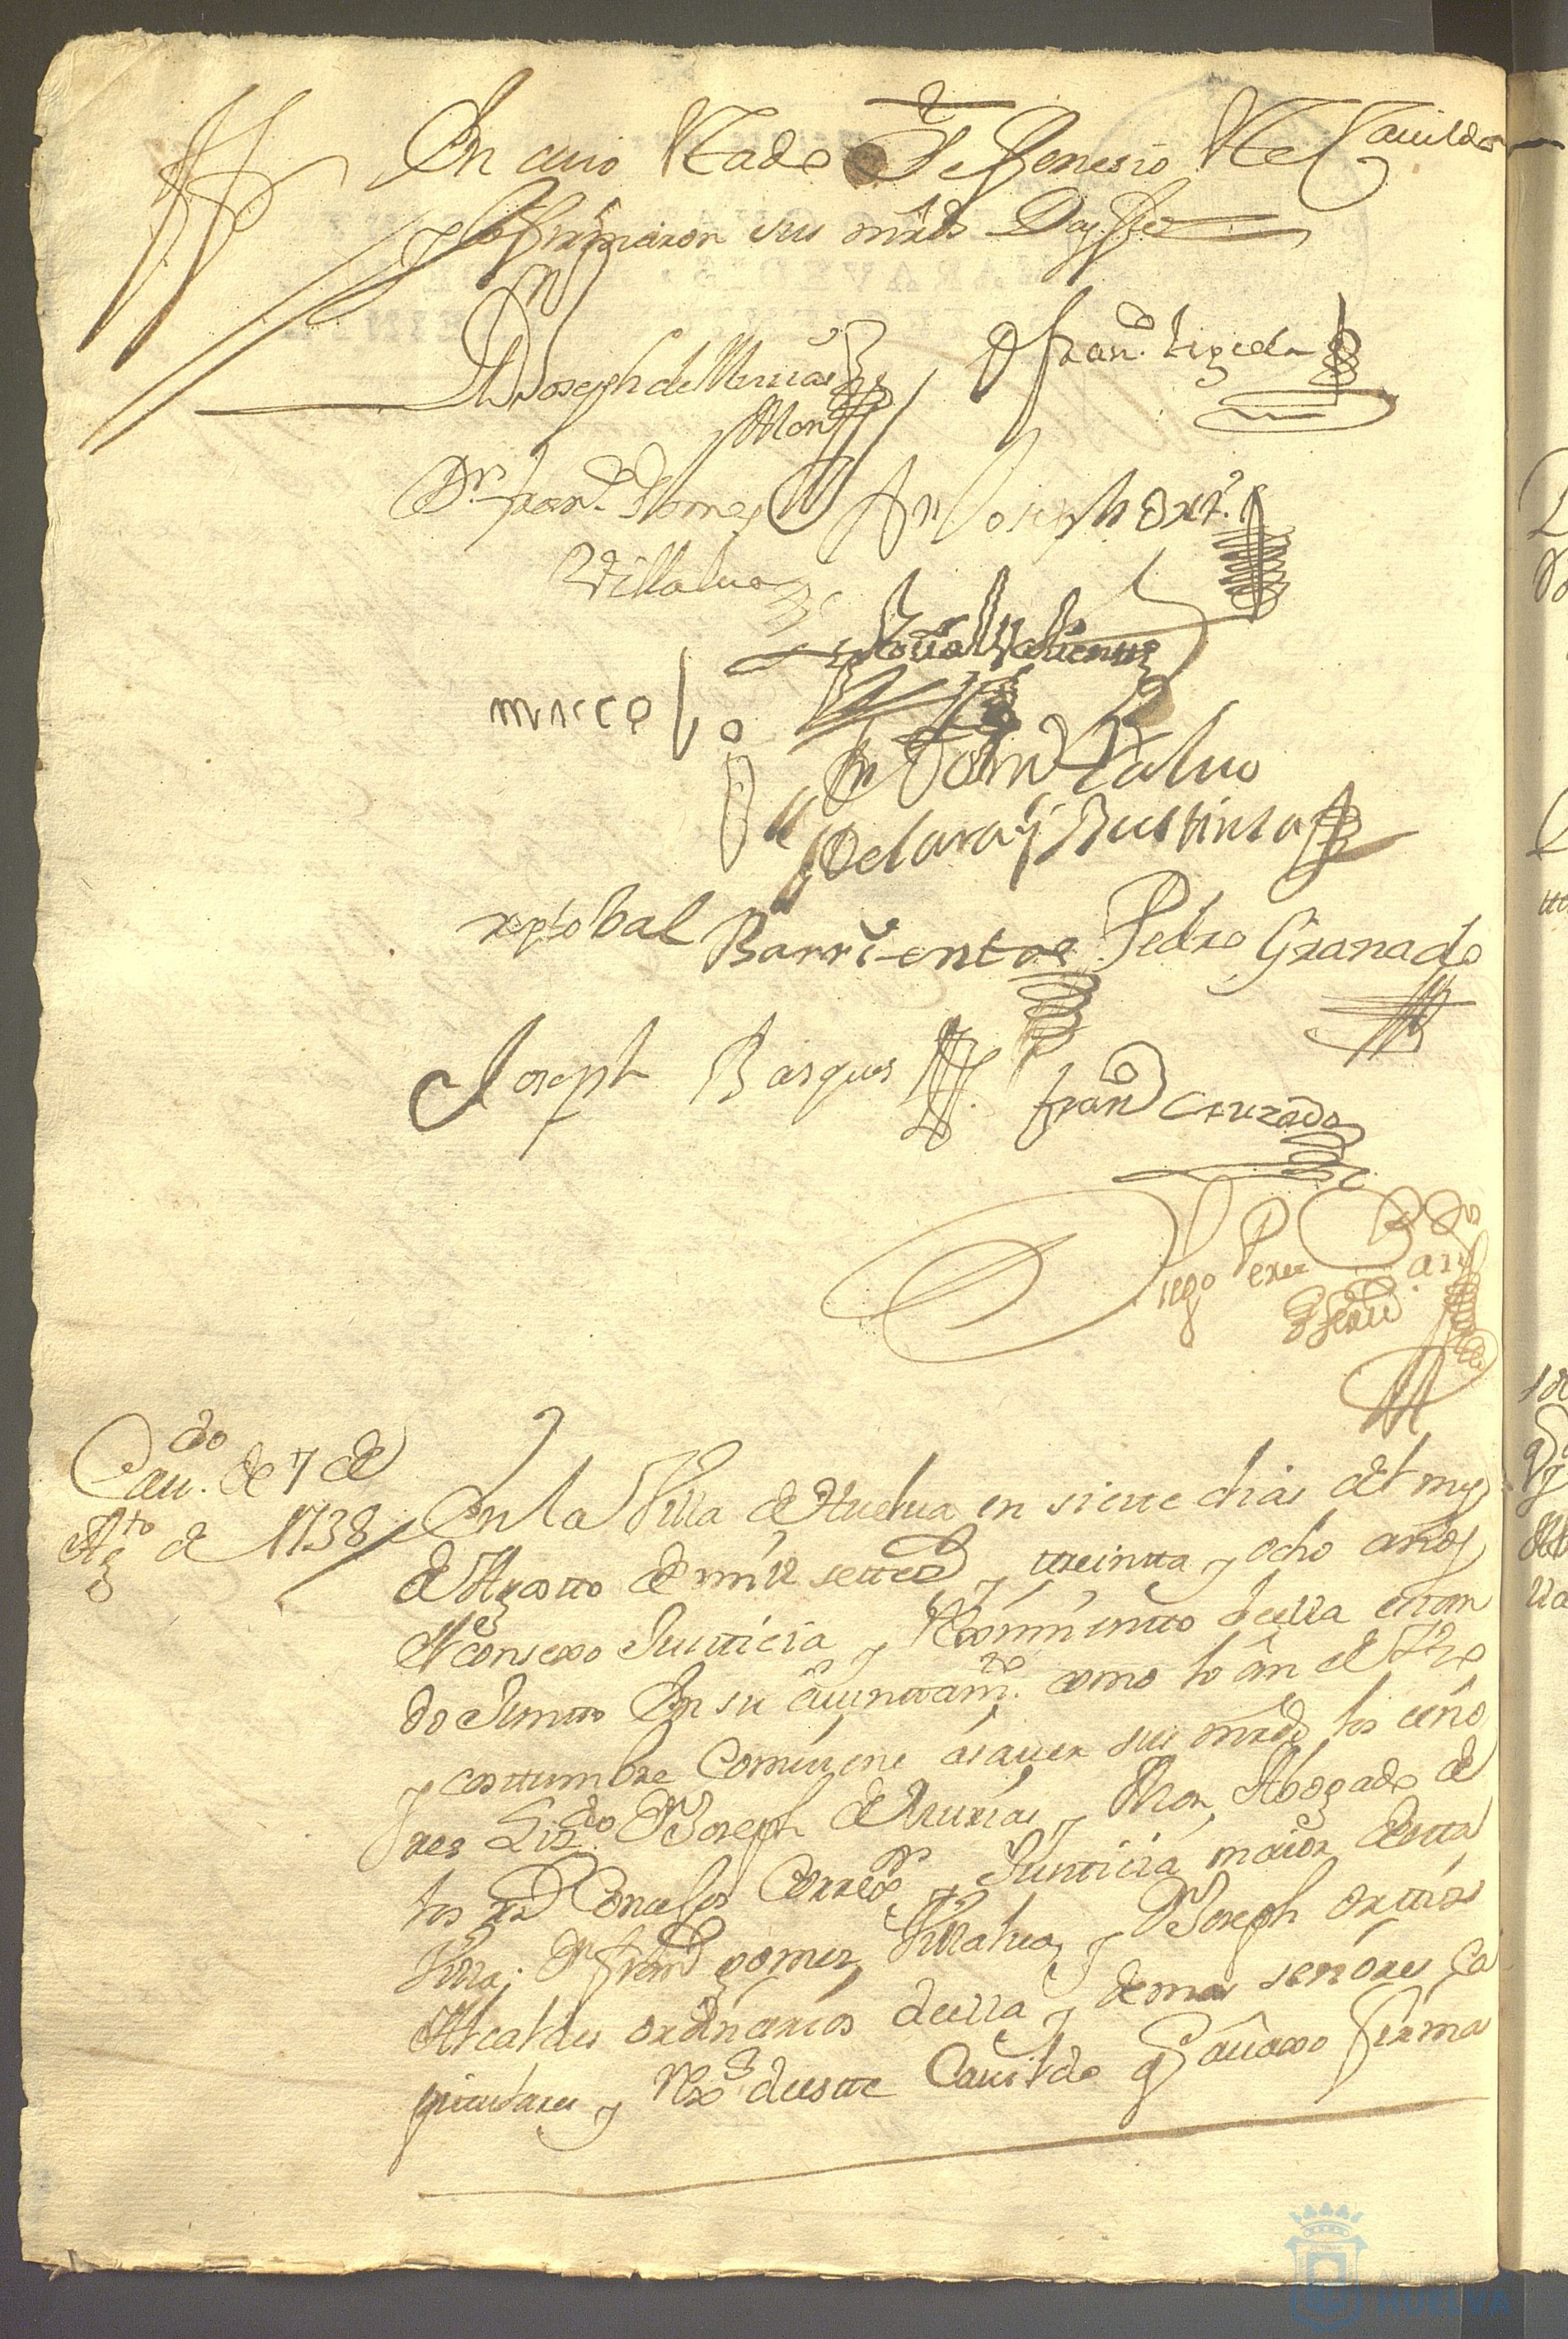 En cuio estado se fenesio este Cauildo
y lo firmaron sus mrds Doy fee
Dn Joseph de Murias
Mon
Dn Fran.co Tixeda
Dn Fran.co Gomez
Villalua
Dn Joseph Ort.s
marco
Dn Caluo
De lara y Bustinsa
xptobal Barrientos
Pedro Granado
Joseph Basques
Fran.co Cruzado
Diego Perez
Cau.do de 7 de
Ag.to de 1738
En la Villa de Huelua en siette dias del mes
de Agosto de mil settec.s y treintta y ocho años
el consexo Justticia y Reximientto de ella estan
do Juntto En su aiunttam.to como lo an de Vso
y costtumbre Combiene asauer sus mrds los seño
res Liz.do Dn Joseph de Murias y Mon Abogado de
los Rs Consejos Correx.or y Justticia maior de estta
Villa; Dn Fran.co gomez Villalua y Dn Joseph orttis
Alcaldes ordinarios de ella y demas señores Ca
pitulares y de estte Cauildo q auaxo firma
Ayuntamiento
HUELVA